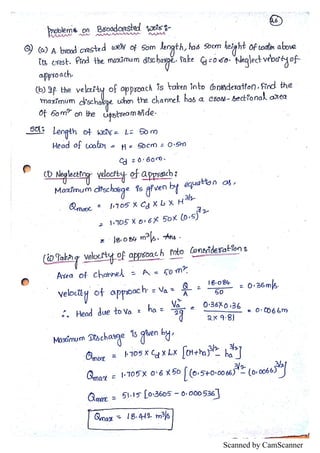 26
Problems on Broadcrested Weirs :-
Q) (a) A broad crested weir of 50m length, has 50cm height of water above
its crest. Find the maximum discharge. Take Cd = 0.60. Neglect velocity of
approach.
(b) If the velocity of approach is taken into consideration. Find the
maximum discharge when the channel has a cross-sectional area
of 50m² on the upstream side.
Sol: Length of weir = L = 50m
Head of water = H = 50cm = 0.5m
Cd = 0.60m.
(i) Neglecting velocity of approach :
Maximum discharge is given by equation as,
Qmax = 1.705 x Cd x L x H^3/2
= 1.705 x 0.6 x 50 x (0.5)^3/2
= 18.084 m³/s. Ans.
(ii) Taking velocity of approach into Consideration :
Area of channel = A = 50m²
velocity of approach = Va = Q/A = 18.084/50 = 0.36m/s
∴ Head due to Va = ha = Va²/2g = 0.36x0.36/2x9.81 = 0.0066m
Maximum Discharge is given by,
Qmax = 1.705 x Cd x L x [(H+ha)^3/2 - ha^3/2]
Qmax = 1.705 x 0.6 x 50 [(0.5+0.0066)^3/2 - (0.0066)^3/2]
Qmax = 51.15 [0.3605 - 0.000536]
Qmax = 18.412 m³/s
Scanned by CamScanner